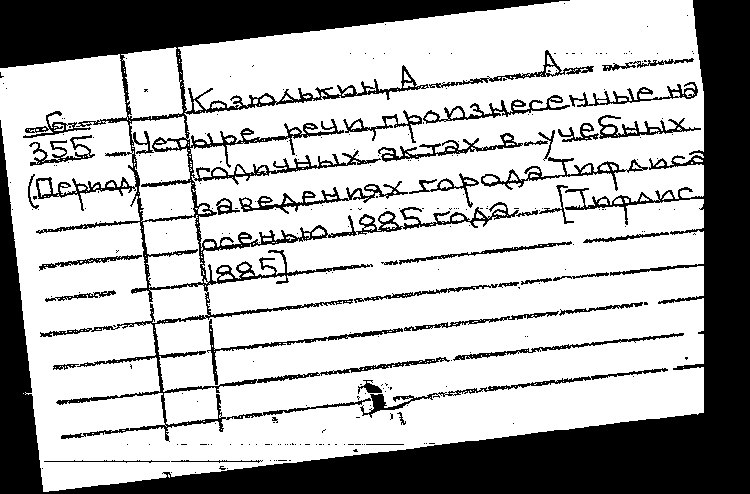 Козюлькин, А А
Б
355
(Период)
Четыре речи, произнесенные на
годичных актах в учебных
заведениях города Тифлиса
осенью 1885 года. [Тифлис,
1885]